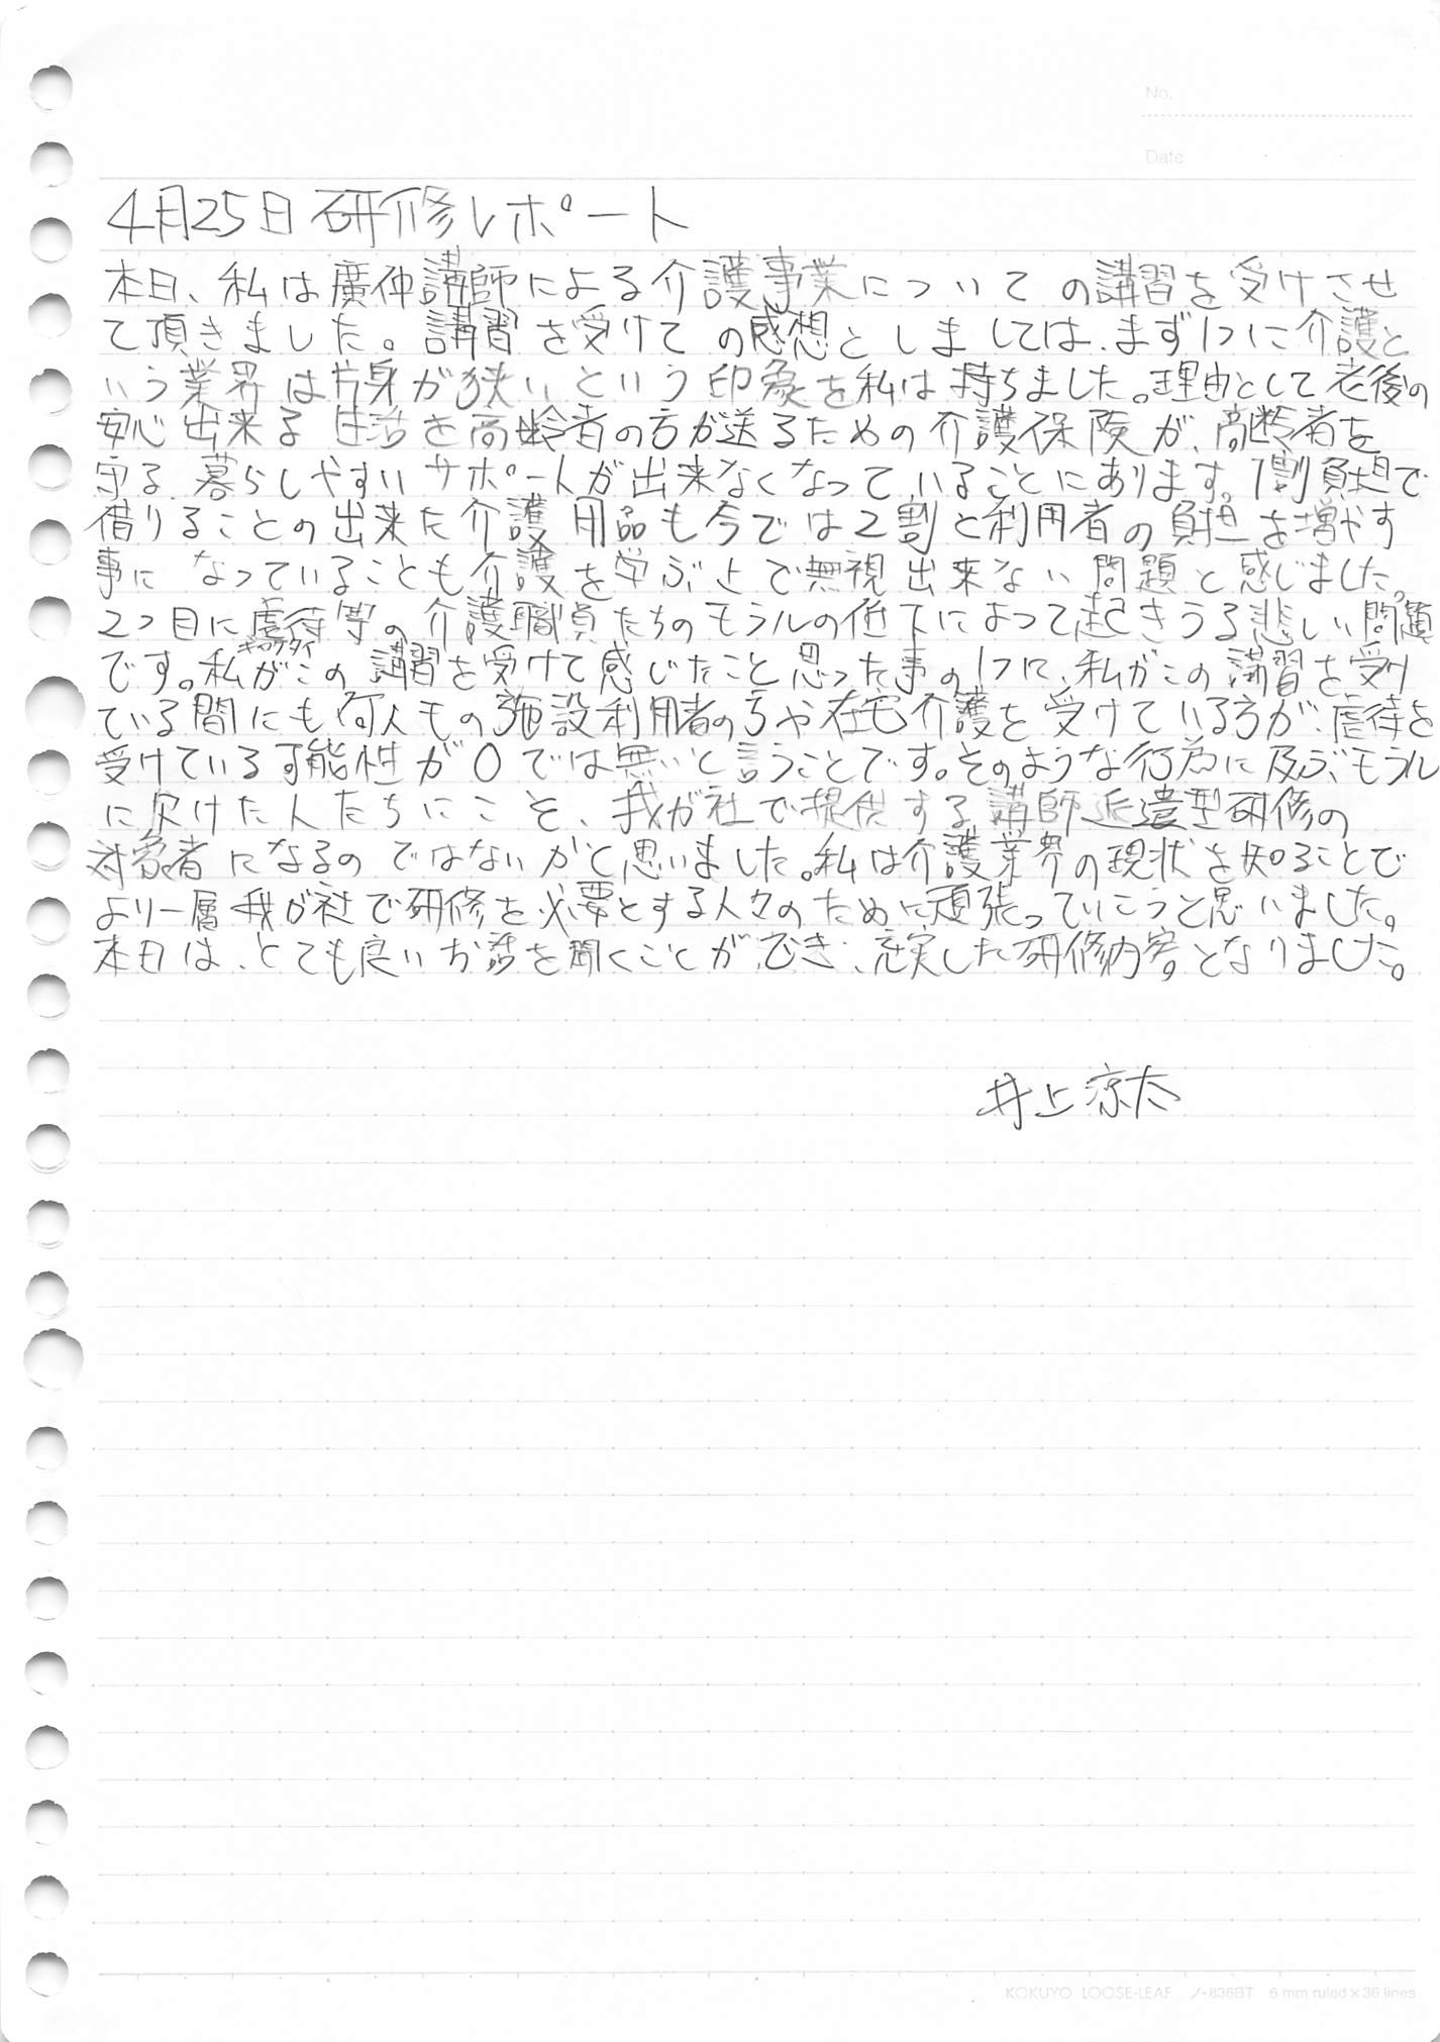 No.
Date
4月25日 研修レポート
本日、私は廣仲講師による介護事業についての講習を受けさせ
て頂きました。講習を受けての感想としましては、まず1つに介護と
いう業界は片身が狭いという印象を私は持ちました。理由として老後の
安心出来る生活を高齢者の方が送るための介護保険が、高齢者を
守る暮らしやすいサポートが出来なくなっていることにあります。1割負担で
借りることの出来た介護用品も今では2割と利用者の負担を増やす
事になっていることも介護を学ぶ上で無視出来ない問題と感じました。
2つ目に虐待等の介護職員たちのモラルの低下によって起きうる悲しい問題
ギャクタイ
です。私がこの講習を受けて感じたこと思った事の1つに、私がこの講習を受け
ている間にも何人もの施設利用者の方や在宅介護を受けている方が、虐待を
受けている可能性が0では無いと言うことです。そのような行為に及ぶ、モラル
に欠けた人たちにこそ、我が社で提供する講師派遣型研修の
対象者になるのではないかと思いました。私は介護業界の現状を知ることで
より一層我が社で研修を必要とする人々のために頑張っていこうと思いました。
本日は、とても良いお話を聞くことができ、充実した研修内容となりました。
井上涼太
KOKUYO LOOSE-LEAF ノ-836BT 6 mm ruled×36 lines